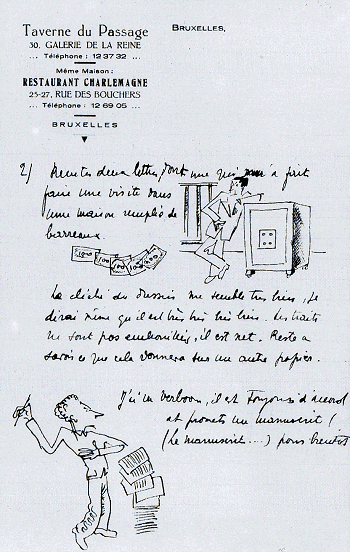 Taverne du Passage
30, GALERIE DE LA REINE
... Téléphone : 12 37 32 ...
Même Maison :
RESTAURANT CHARLEMAGNE
25-27, RUE DES BOUCHERS
... Téléphone : 12 69 05 ...
BRUXELLES
BRUXELLES,
2) deux lettres dont une qui m'a fait
faire une visite dans
une maison remplie de
barreaux.
100 100 100
Le cliché du dessin me semble très bien, je
dirai même qu'il est très très très bien. Les traits
ne sont pas, il est net. Reste à
savoir ce que cela donnera sur un autre papier.
J'ai vu Verboom, il est toujours d'accord
et promets un manuscrit !
(Le manuscrit ....) pour bientôt